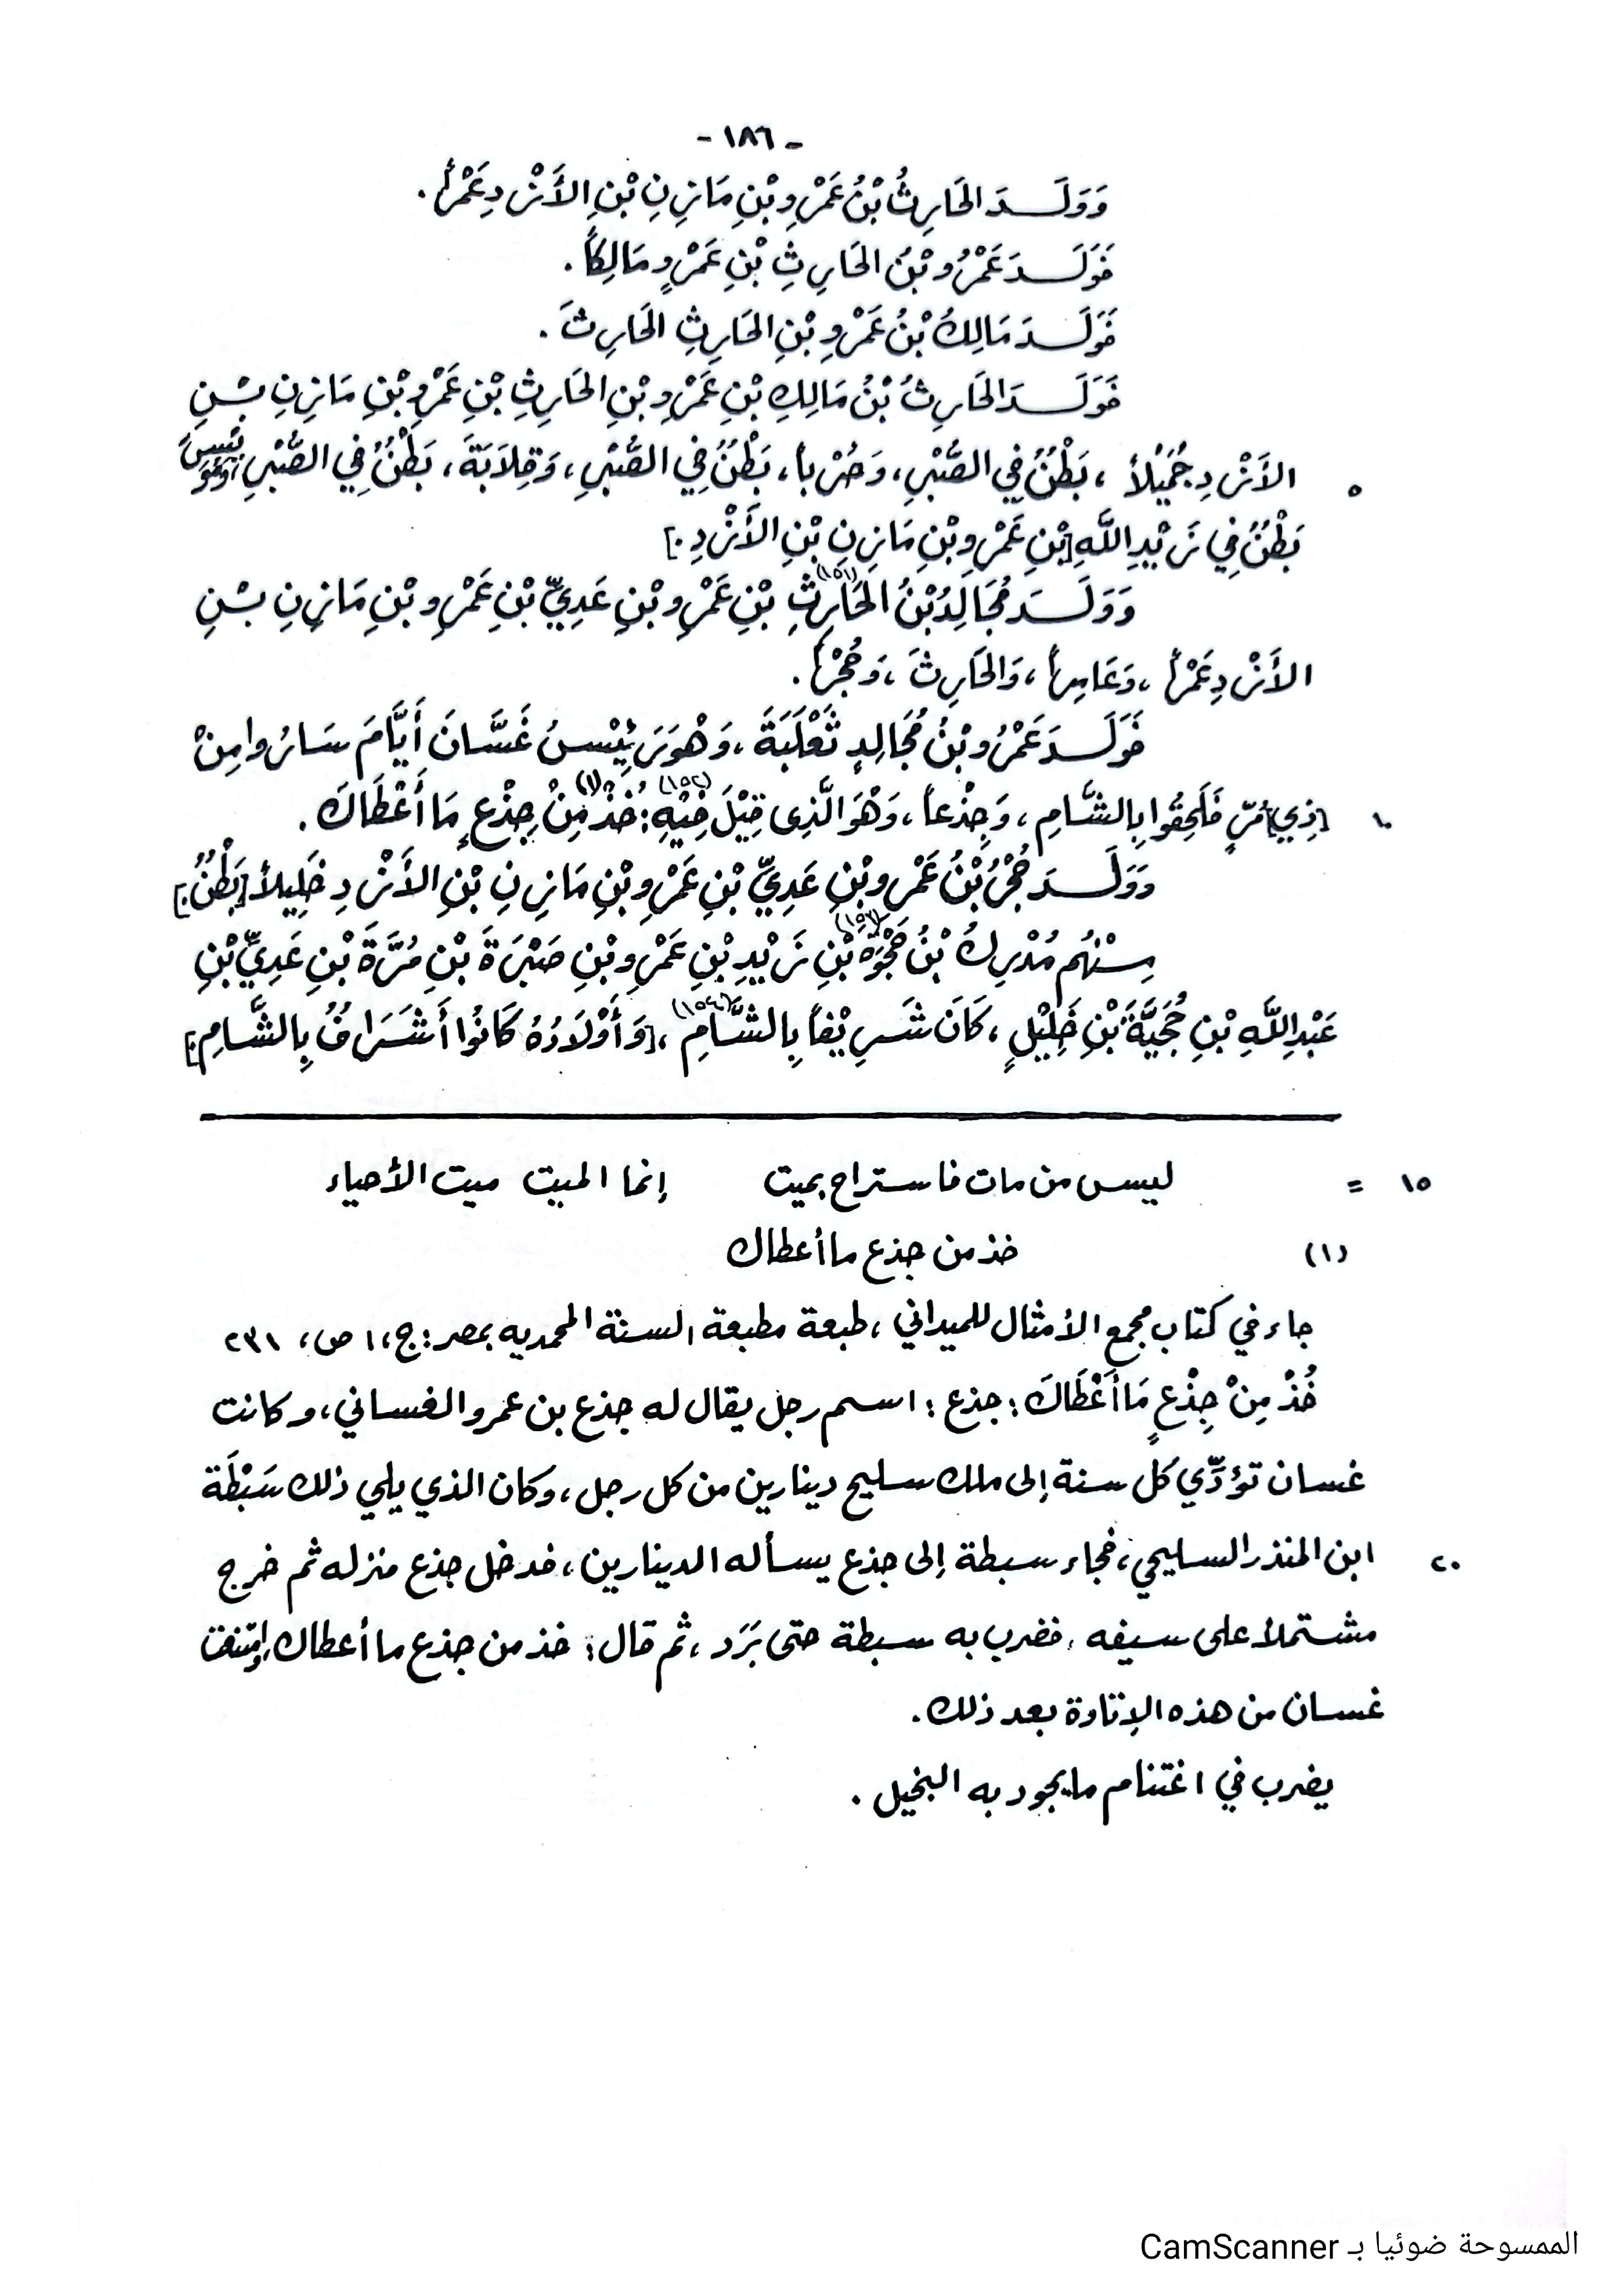 - ١٨٦ -
وَوَلَـــدَ الحَارِثُ بْنُ عَمْرِو بْنِ مَازِنِ بْنِ الأَزْدِ عَمْراً .
فَوَلَـــدَ عَمْرُو بْنُ الحَارِثِ بْنِ عَمْرٍو مَالِكاً .
فَوَلَـــدَ مَالِكُ بْنُ عَمْرِو بْنِ الحَارِثِ الحَارِثَ .
فَوَلَـــدَ الحَارِثُ بْنُ مَالِكِ بْنِ عَمْرِو بْنِ الحَارِثِ بْنِ عَمْرِو بْنِ مَازِنِ بْـنِ
٥ الأَزْدِ جُمَيْلاً ، بَطْنٌ فِي الصُّبْرِ، وَحُرْباً، بَطْنٌ فِي الصُّبْرِ، وَقِلَابَةَ، بَطْنٌ فِي الصُّبْرِ
بَطْنٌ فِي زَيْدِ اللَّهِ [بْنِ عَمْرِو بْنِ مَازِنِ بْنِ الأَزْدِ.]
وَوَلَـــدَ مُجَالِدُ بْنُ الحَارِثِ (١٥١) بْنِ عَمْرِو بْنِ عَدِيِّ بْنِ عَمْرِو بْنِ مَازِنِ بْـنِ
الأَزْدِ عَمْراً ، وَعَامِراً ، وَالحَارِثَ ، وَحُجْراً .
فَوَلَـــدَ عَمْرُو بْنُ مُجَالِدٍ ثَعْلَبَةَ ، وَهْوَ رَئِيْسُ غَسَّانَ أَيَّامَ سَارُوا مِنْ
١٠ [ذِي] مُرٍّ فَلَحِقُوا بِالشَّامِ ، وَجِذْعاً ، وَهْوَ الَّذِى قِيْلَ فِيْهِ (١٥٢): خُذْ (١) مِنْ جِذْعٍ مَا أَعْطَاكَ .
وَوَلَـــدَ حُجْرُ بْنُ عَمْرِو بْنِ عَدِيِّ بْنِ عَمْرِو بْنِ مَازِنِ بْنِ الأَزْدِ خَلِيلاً [بَطْنٌ.]
مِـنْهُم مُدْرِكُ بْنُ حَجْوَةَ (١٥٣) بْنِ زَيْدِ بْنِ عَمْرِو بْنِ صَبْرَةَ بْنِ مُرَّةَ بْنِ عَدِيِّ بْنِ
عَبْدِ اللَّهِ بْنِ حُجَيَّةَ بْنِ خَلِيْلٍ ، كَانَ شَرِيْفاً بِالشَّامِ (١٥٤) ، [وَأَوْلَادُهُ كَانُوا أَشَرَافٌ بِالشَّامِ.]
١٥ = ليس من مات فاستراح بميت إنما الميت ميت الأحياء
(١) خذ من جذع ما أعطاك
جاء في كتاب مجمع الأمثال للميداني ، طبعة مطبعة السنة المحمديه بمصر : ج ، ١ ص ، ٢٣١
خُذْ مِنْ جِذْعٍ مَا أَعْطَاكَ : جذع : اسم رجل يقال له جذع بن عمرو الغساني ، وكانت
غسان تؤدّي كل سنة إلى ملك سليح دينارين من كل رجل ، وكان الذي يلي ذلك سَبْطَة
٢٠ ابن المنذر السليحي ، فجاء سبطة إلى جذع يسأله الدينارين ، فدخل جذع منزله ثم خرج
مشتملاً على سيفه ، فضرب به سبطة حتى بَرَد ، ثم قال : خذ من جذع ما أعطاك ، وامتنعت
غسان من هذه الإتاوة بعد ذلك .
يضرب في اغتنام ما يجود به البخيل .
الممسوحة ضوئيا بـ CamScanner